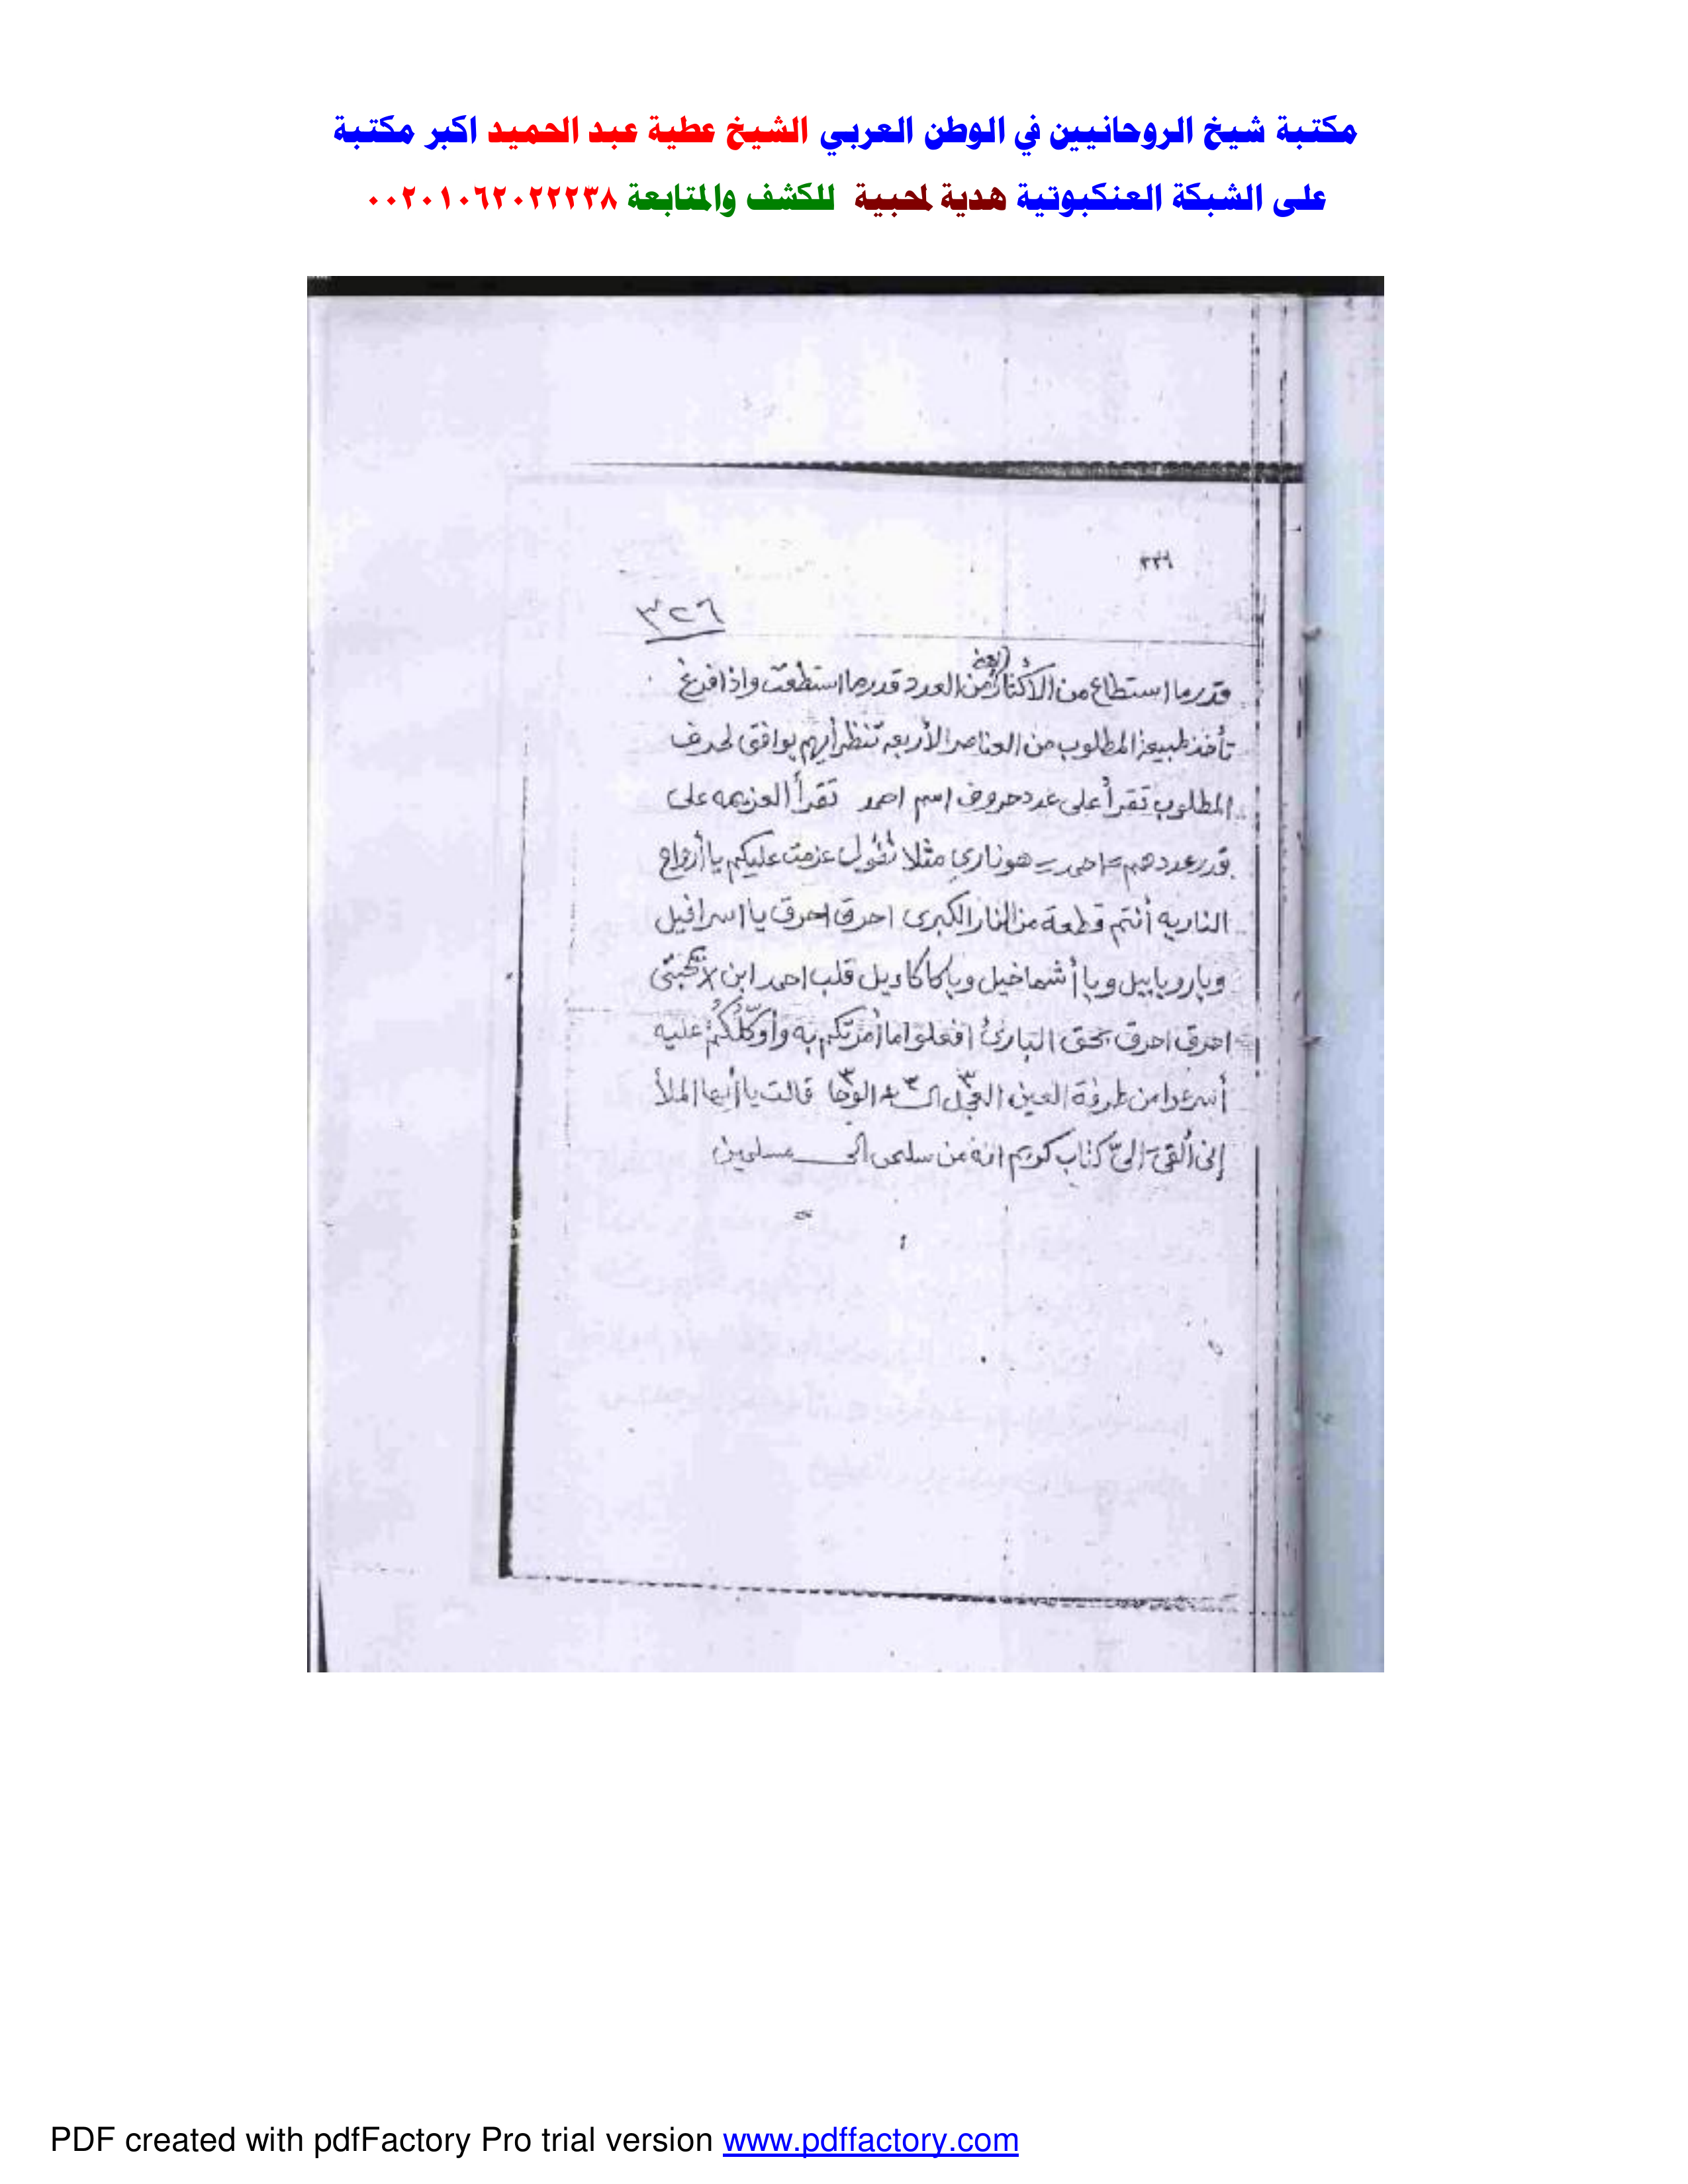 مكتبة شيخ الروحانيين في الوطن العربي الشيخ عطية عبد الحميد اكبر مكتبة
على الشبكة العنكبوتية هدية لمحبية للكشف والمتابعة ٠٠٢٠١٠٦٢٠٢٢٢٣٨
٣٢٦
قدر ما استطاع من الأكثار من العدد قدر ما استطعت واذا فرغ
تأخذ طبيعة المطلوب من العناصر الأربعه تنظر أيهم يوافق لحرف
المطلوب تقرأ على عدد حروف اسم احمد تقرأ العزيمه على
قدر عددهم احمد هو ناري مثلا تقول عزمت عليكم يا أرواح
الناريه أنتم قطعة من النار الكبرى احرق احرق يا اسرافيل
ويا روياييل ويا أشماخيل ويا كاكاويل قلب احمد ابن
احرق احرق بحق البارئ افعلوا ما أمرتكم به وأوكلكم عليه
أسرعوا من طرفة العين العجل ٣ ٣ الوحا ٣ قالت يا أيها الملأ
إني ألقي إليّ كتاب كريم انه من سليمن الى مسلمين
PDF created with pdfFactory Pro trial version www.pdffactory.com